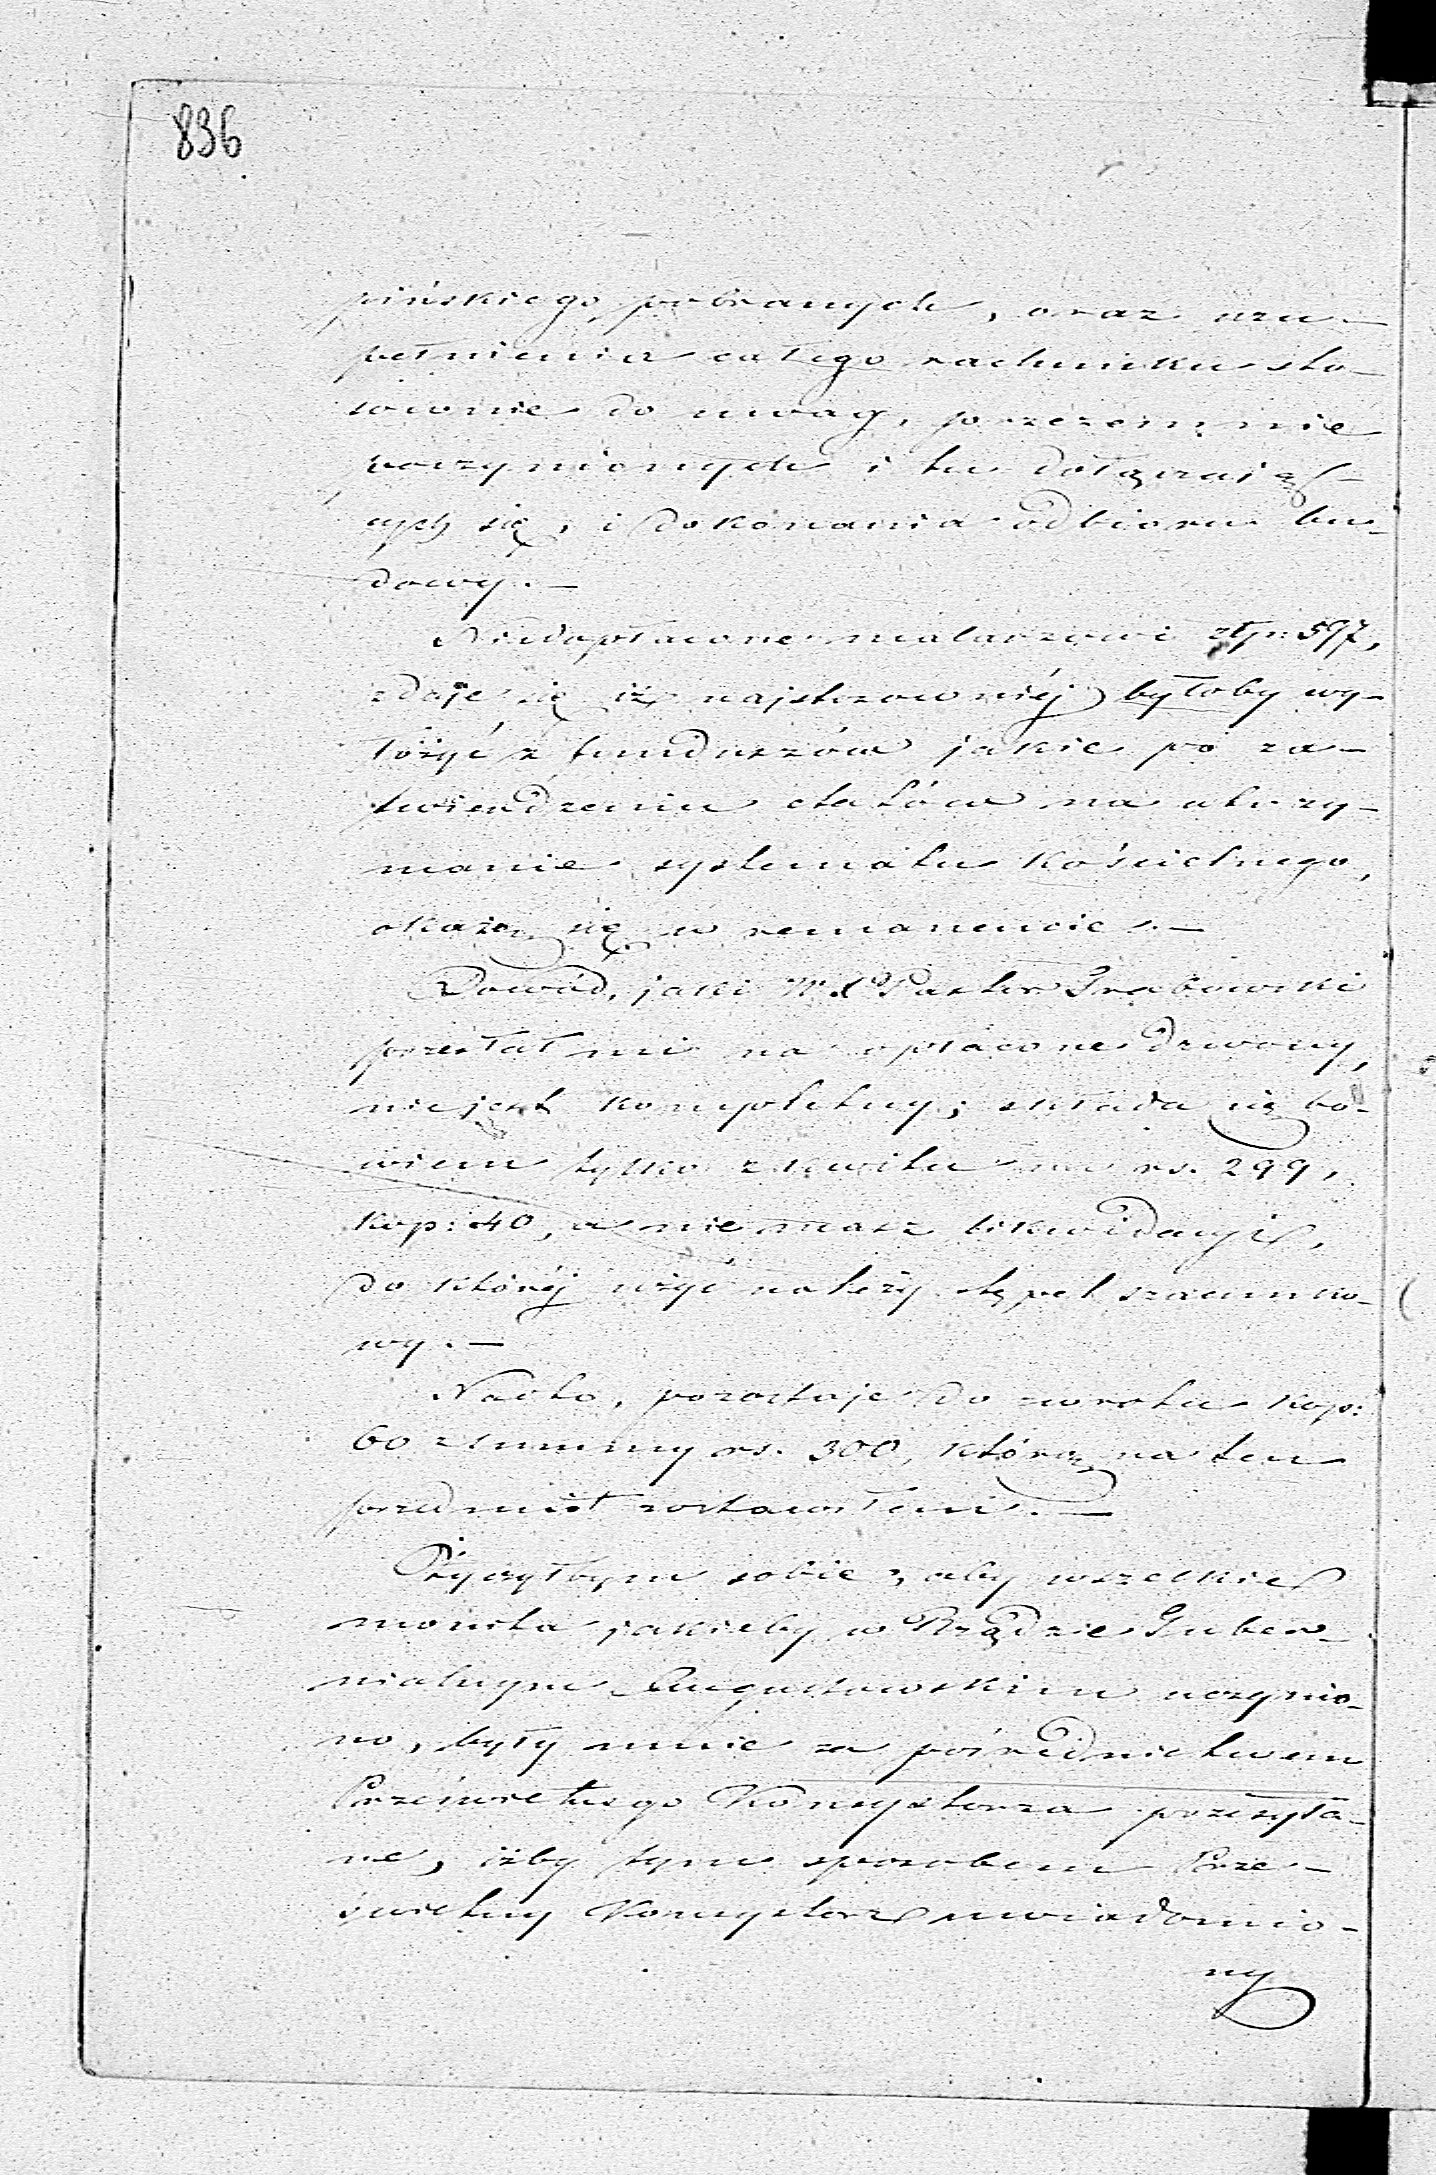 836
pińskiego pobranych, oraz uzu-
pełnienia całego rachunku sto-
sownie do uwag, przezemnie
poczynionych i tu dołączają-
cych się, i dokonania odbioru bu-
dowy. —
Niedopłacone malarzowi złp: 597,
zdaje się iż najstosowniéj byłoby wy-
łożyć z funduszów jakie po za-
twierdzeniu etatów na utrzy-
manie systematu kościelnego,
okażą się w remanencie. —
Dowód, jaki W. X Pastor Grabowski
przesłał mi na opłacone dzwony,
nie jest kompletny; składa się bo-
wiem tylko z kwitu na rs. 299,
kop: 40, a nie masz likwidacyi,
do któréj użyć należy stępel szacunko-
wy. —
Nadto, pozostaje do zwrotu kop:
60 z summy rs. 300, którą na ten
przedmiot zostawiłem. —
Życzyłbym sobie, aby wszelkie
monita jakieby w Rządzie Guber-
nialnym Augustowskim uczynio-
no, były mnie za pośrednictwem
Prześwietnego Konsystorza przesyła-
ne, iżby tym sposobem Prze-
świetny Konsystorz uwiadomio-
ny